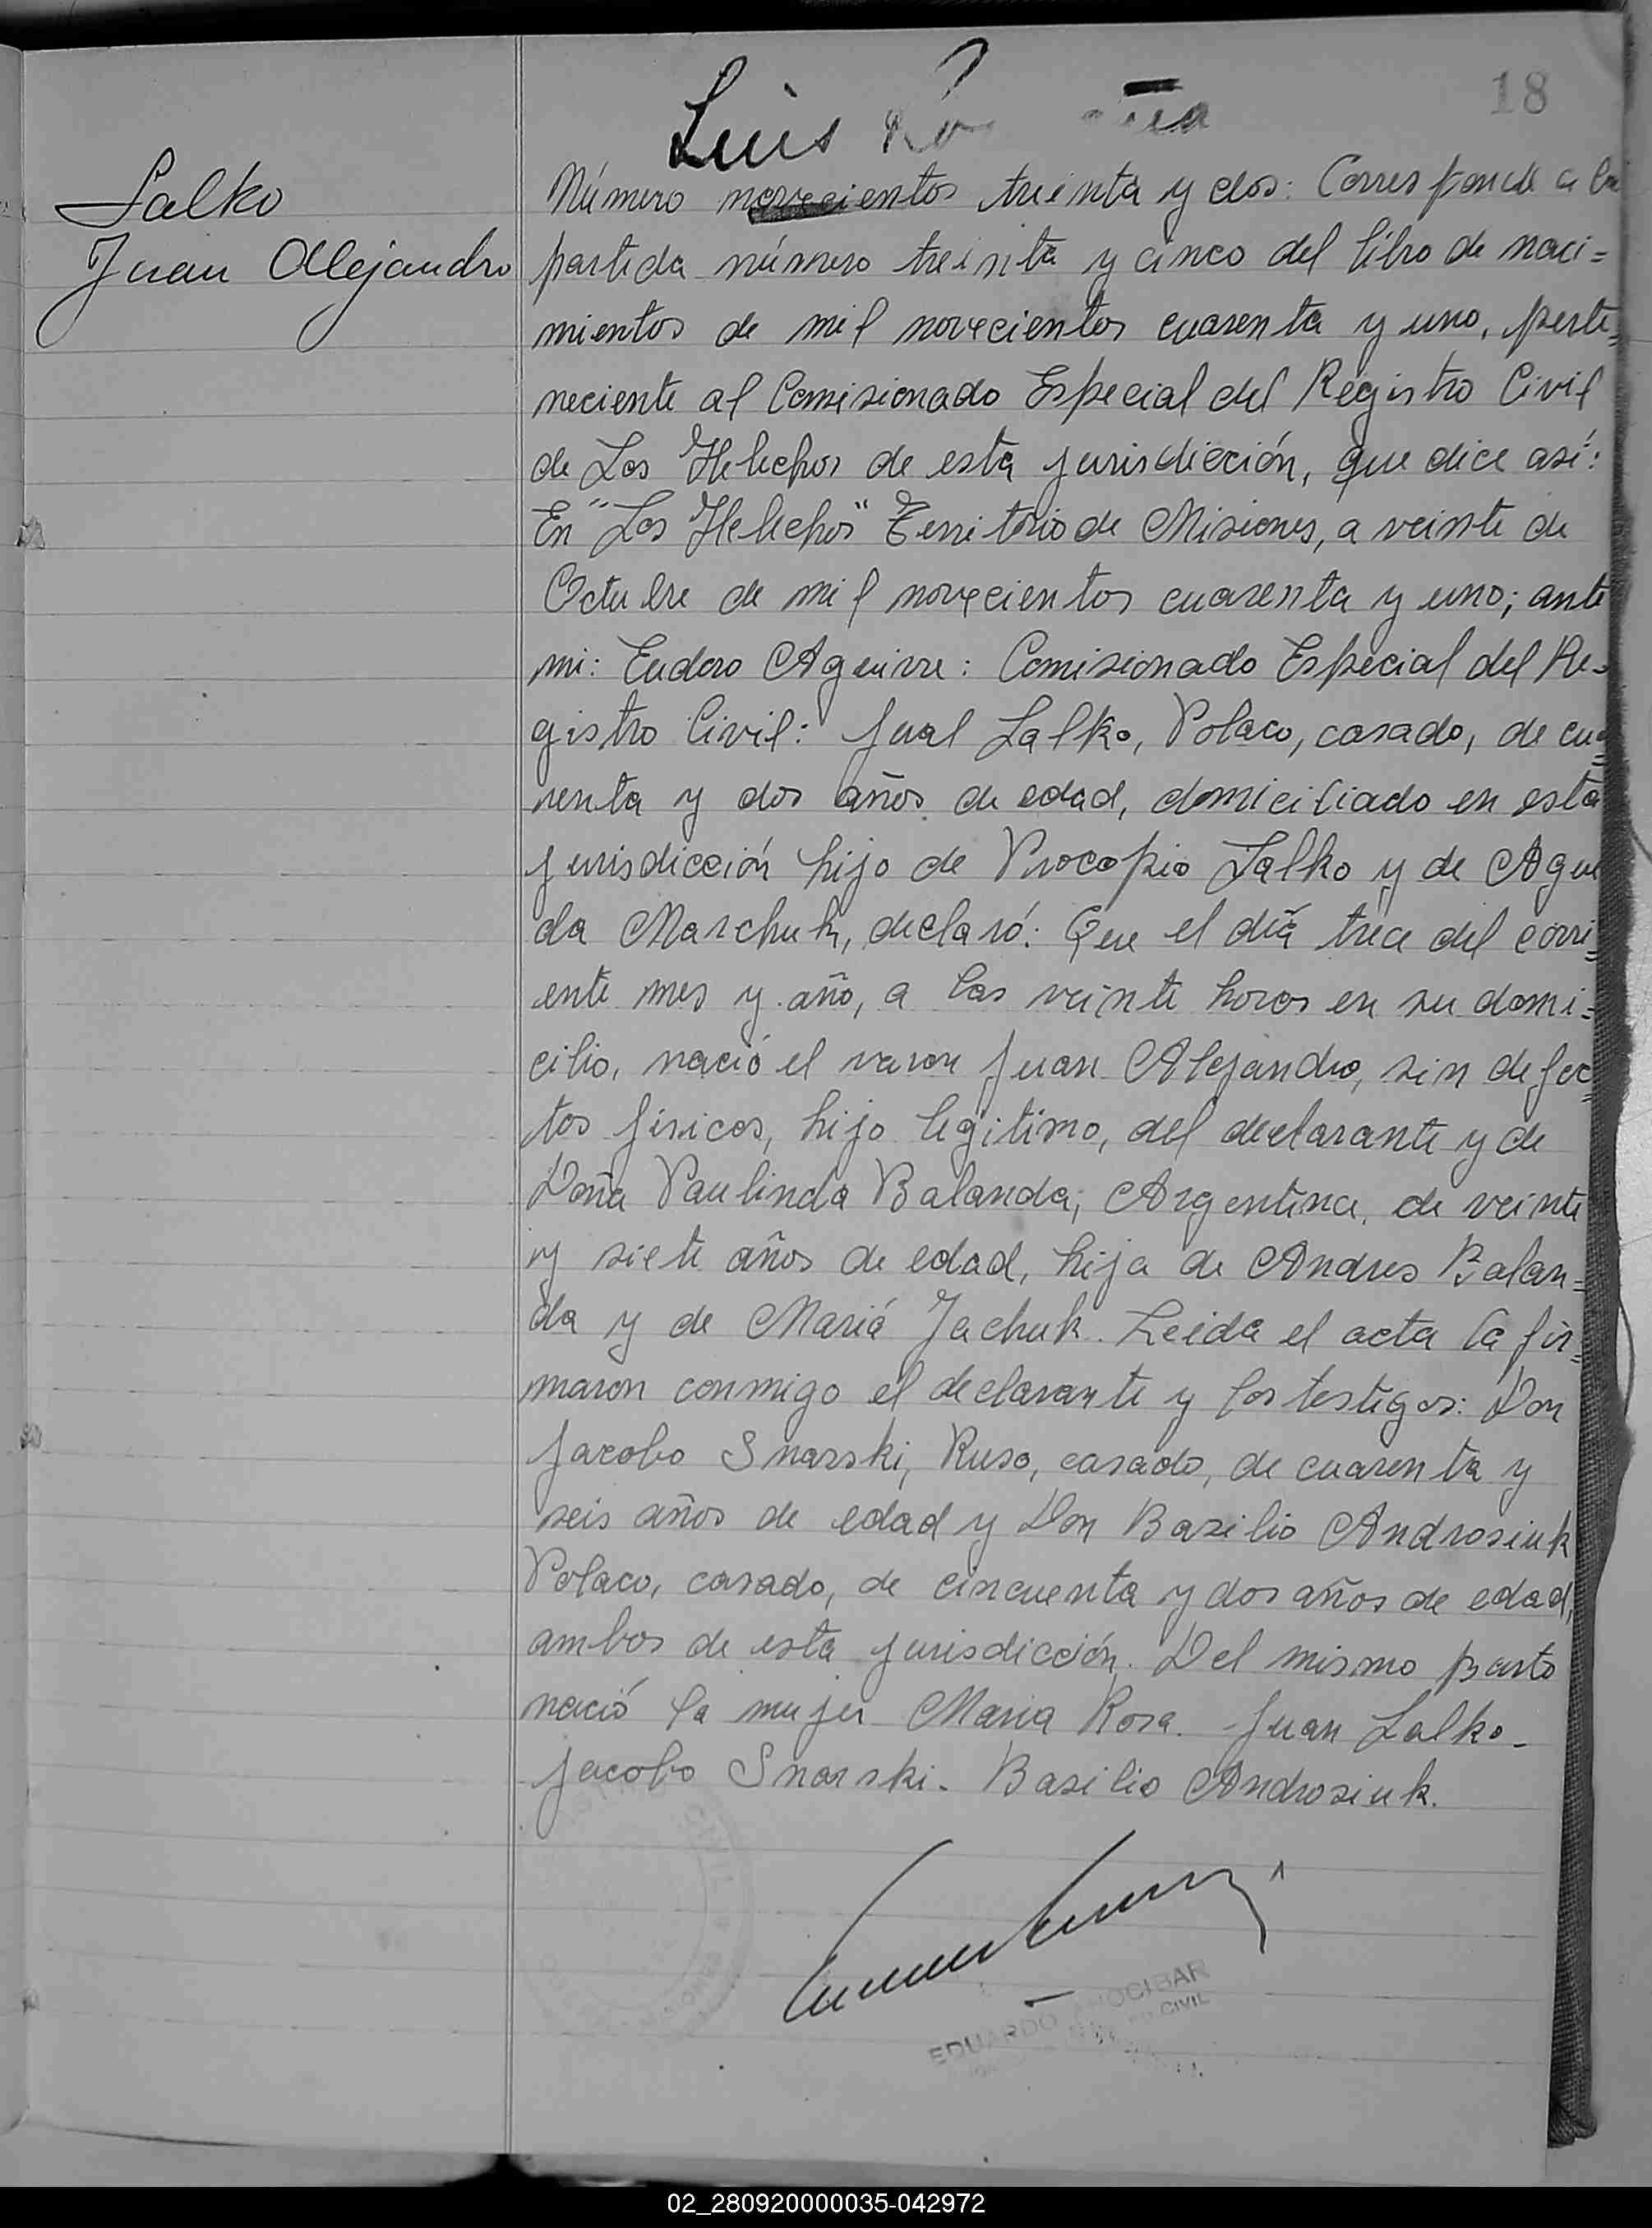 18
Luis
Lalko
Juan Alejandro
Número novecientos treinta y dos: Corresponde a la
partida número treinta y cinco del libro de naci=
mientos de mil novecientos cuarenta y uno, perte=
neciente al Comisionado Especial del Registro Civil
de Los Helechos de esta jurisdicción, que dice así:
En "Los Helechos" Territorio de Misiones, a veinte de
Octubre de mil novecientos cuarenta y uno; ante
mi: Eudoro Aguirre: Comisionado Especial del Re=
gistro Civil: Jual Lalko, Polaco, casado, de cua=
renta y dos años de edad, domiciliado en esta
jurisdicción hijo de Procopio Lalko y de Ague
da Marchuk, declaró: Que el día trece del corri=
ente mes y año, a las veinte horas en su domi=
cilio, nació el varon Juan Alejandro, sin defec=
tos fisicos, hijo legitimo, del declarante y de
Doña Paulinda Balanda; Argentina, de veinte
y siete años de edad, hija de Andres Balan=
da y de Mariá Jachuk. Leida el acta la fir=
maron conmigo el declarante y los testigos: Don
Jacobo Snarski, Ruso, casado, de cuarenta y
seis años de edad y Don Basilio Androsiuk
Polaco, casado, de cincuenta y dos años de edad,
ambos de esta jurisdicción. Del mismo parto
nació la mujer Maria Rosa. - Juan Lalko -
Jacobo Snarski - Basilio Androsiuk.
EDUARDO
CIVIL
02_280920000035-042972